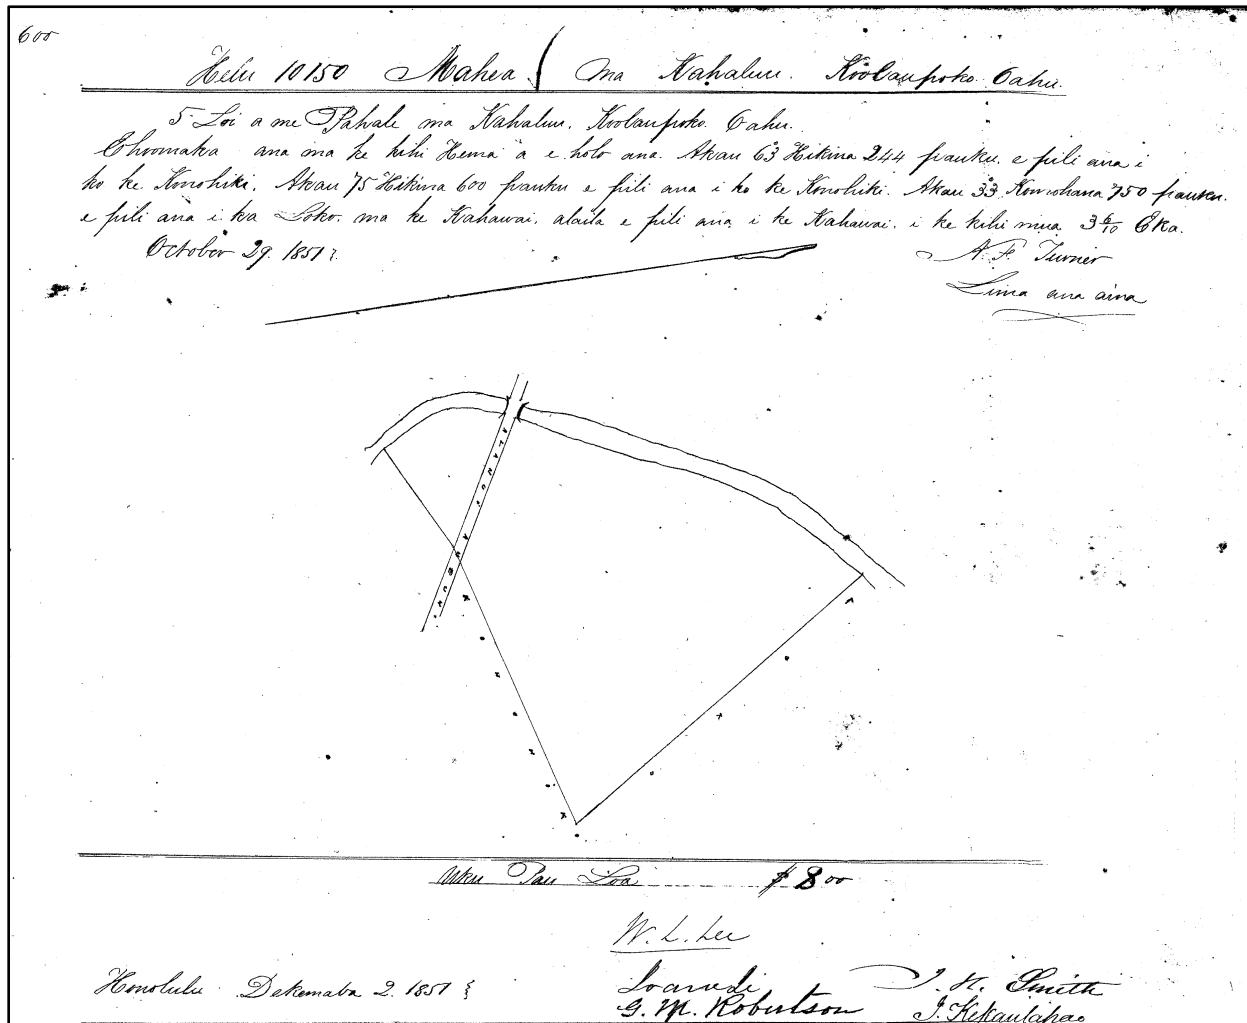 600
Helu 10150 Mahea ma Kahaluu. Koolaupoko. Oahu.
5 Loi a me Pahale ma Kahaluu. Koolaupoko. Oahu.
Ehoomaka ana ma ke kihi Hema a e holo ana. Akau 63 Hikina 244 pauku. e pili ana i
ko ke Konohiki. Akau 75 Hikina 600 pauku e pili ana i ko ke Konohiki. Akau 33 Komohana 750 pauku.
e pili ana i ka Loko. ma ke Kahawai. alaila e pili ana i ke Kahawai. i ke kihi mua 3 6/10 Eka.
October 29. 1851
A. F. Turner
Luna ana aina
Uku Pau Loa $ 8 00
W. L. Lee
Honolulu Dekemaba 2. 1851
J. H. Smith
G. M. Robertson J. Kekaulahao